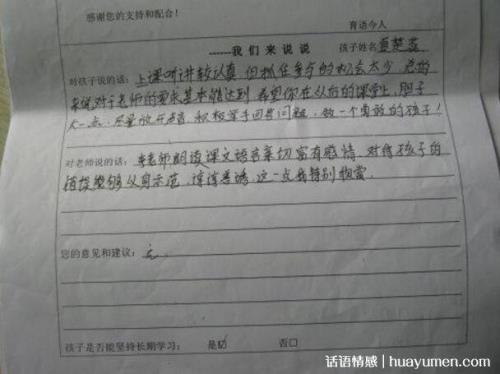 感谢您的支持和配合！
育语今人
------我 们 来 说 说
孩子姓名
对孩子说的话：上课听讲较认真 但抓住参与的机会太少 总的
来说对于老师的要求基本能达到 希望你在以后的课堂上，胆子
大一点，尽量放开声音，积极举手回答问题，做一个勇敢的孩子！
对老师说的话：老师朗读课文语言亲切富有感情，对待孩子的
能够以身示范，谆谆善诱，这一点我特别
您的意见和建议：无。
孩子是否能坚持长期学习： 是 否口
话语情感 | huayumen.com